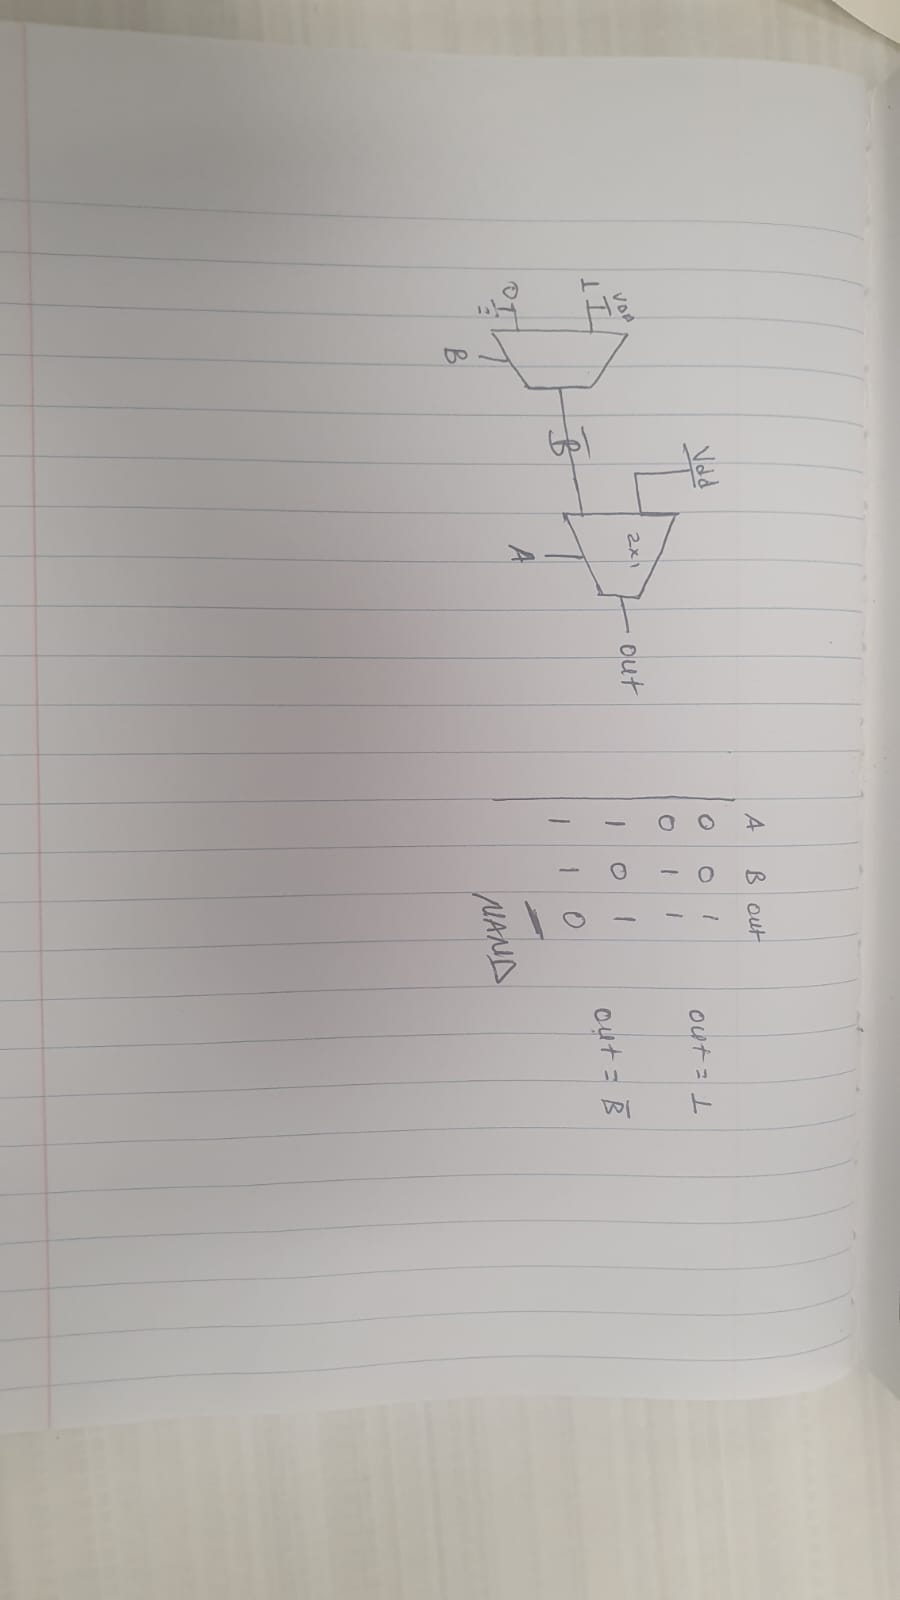 VDD
1
0
B
B̅
Vdd
2x1
A
out
A B out
0 0 1 out = 1
0 1 1
1 0 1 out = B̅
1 1 0
NAND